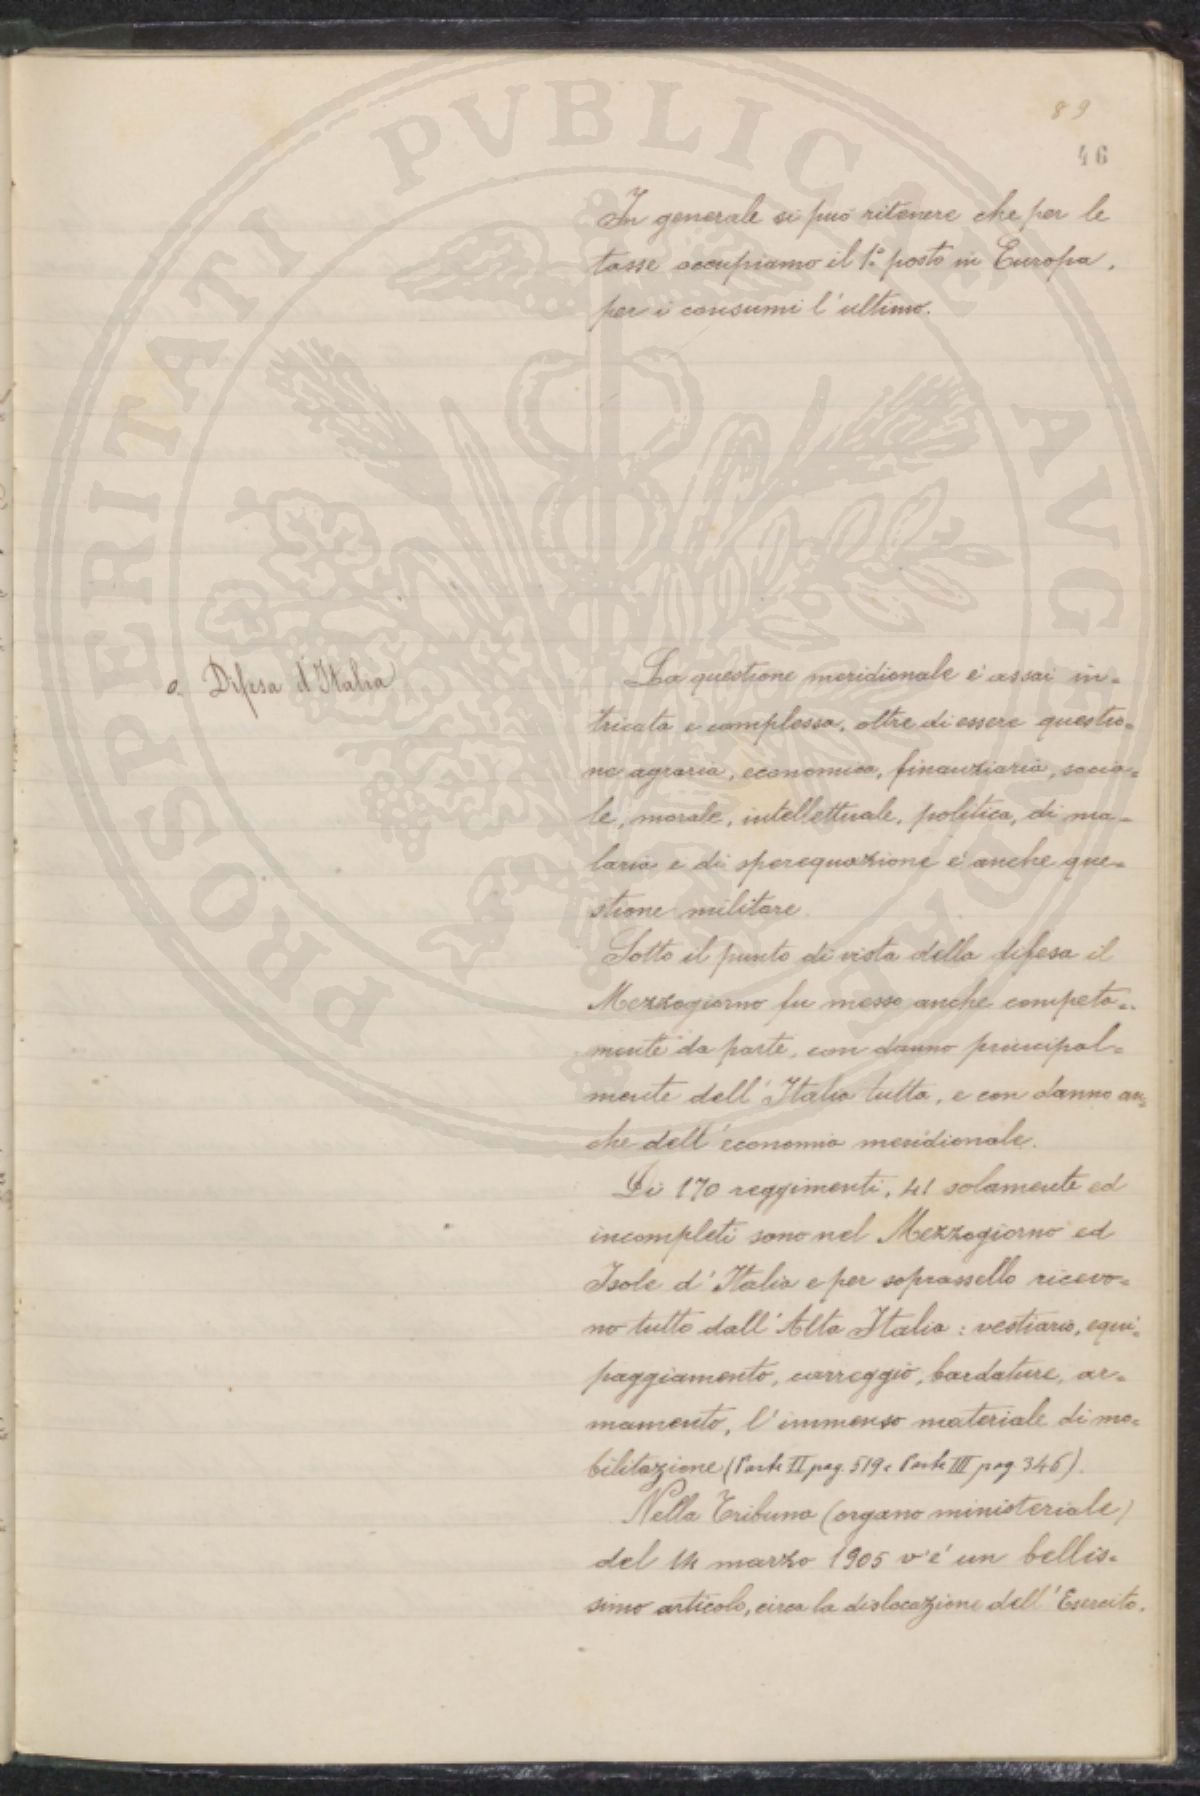 PROSPERITATI PVBLICAE AVGENDAE
89
46
In generale si può ritenere che per le
tasse occupiamo il 1.° posto in Europa,
per i consumi l'ultimo.
o. Difesa d'Italia
La questione meridionale è assai in=
tricata e complessa, oltre di essere questio=
ne agraria, economica, finanziaria, socia=
le, morale, intellettuale, politica, di ma=
laria e di sperequazione è anche que=
stione militare.
Sotto il punto di vista della difesa il
Mezzogiorno fu messo anche competa=
mente da parte, con danno principal=
mente dell'Italia tutta, e con danno an=
che dell'economia meridionale.
Di 170 reggimenti, 41 solamente ed
incompleti sono nel Mezzogiorno ed
Isole d'Italia e per soprassello ricevo=
no tutto dall'Alta Italia: vestiario, equi=
paggiamento, carreggio, bardature, ar=
mamento, l'immenso materiale di mo=
bilitazione (Parte II pag. 519 e Parte III pag 346).
Nella Tribuna (organo ministeriale)
del 14 marzo 1905 v'è un bellis=
simo articolo, circa la dislocazione dell'Esercito.